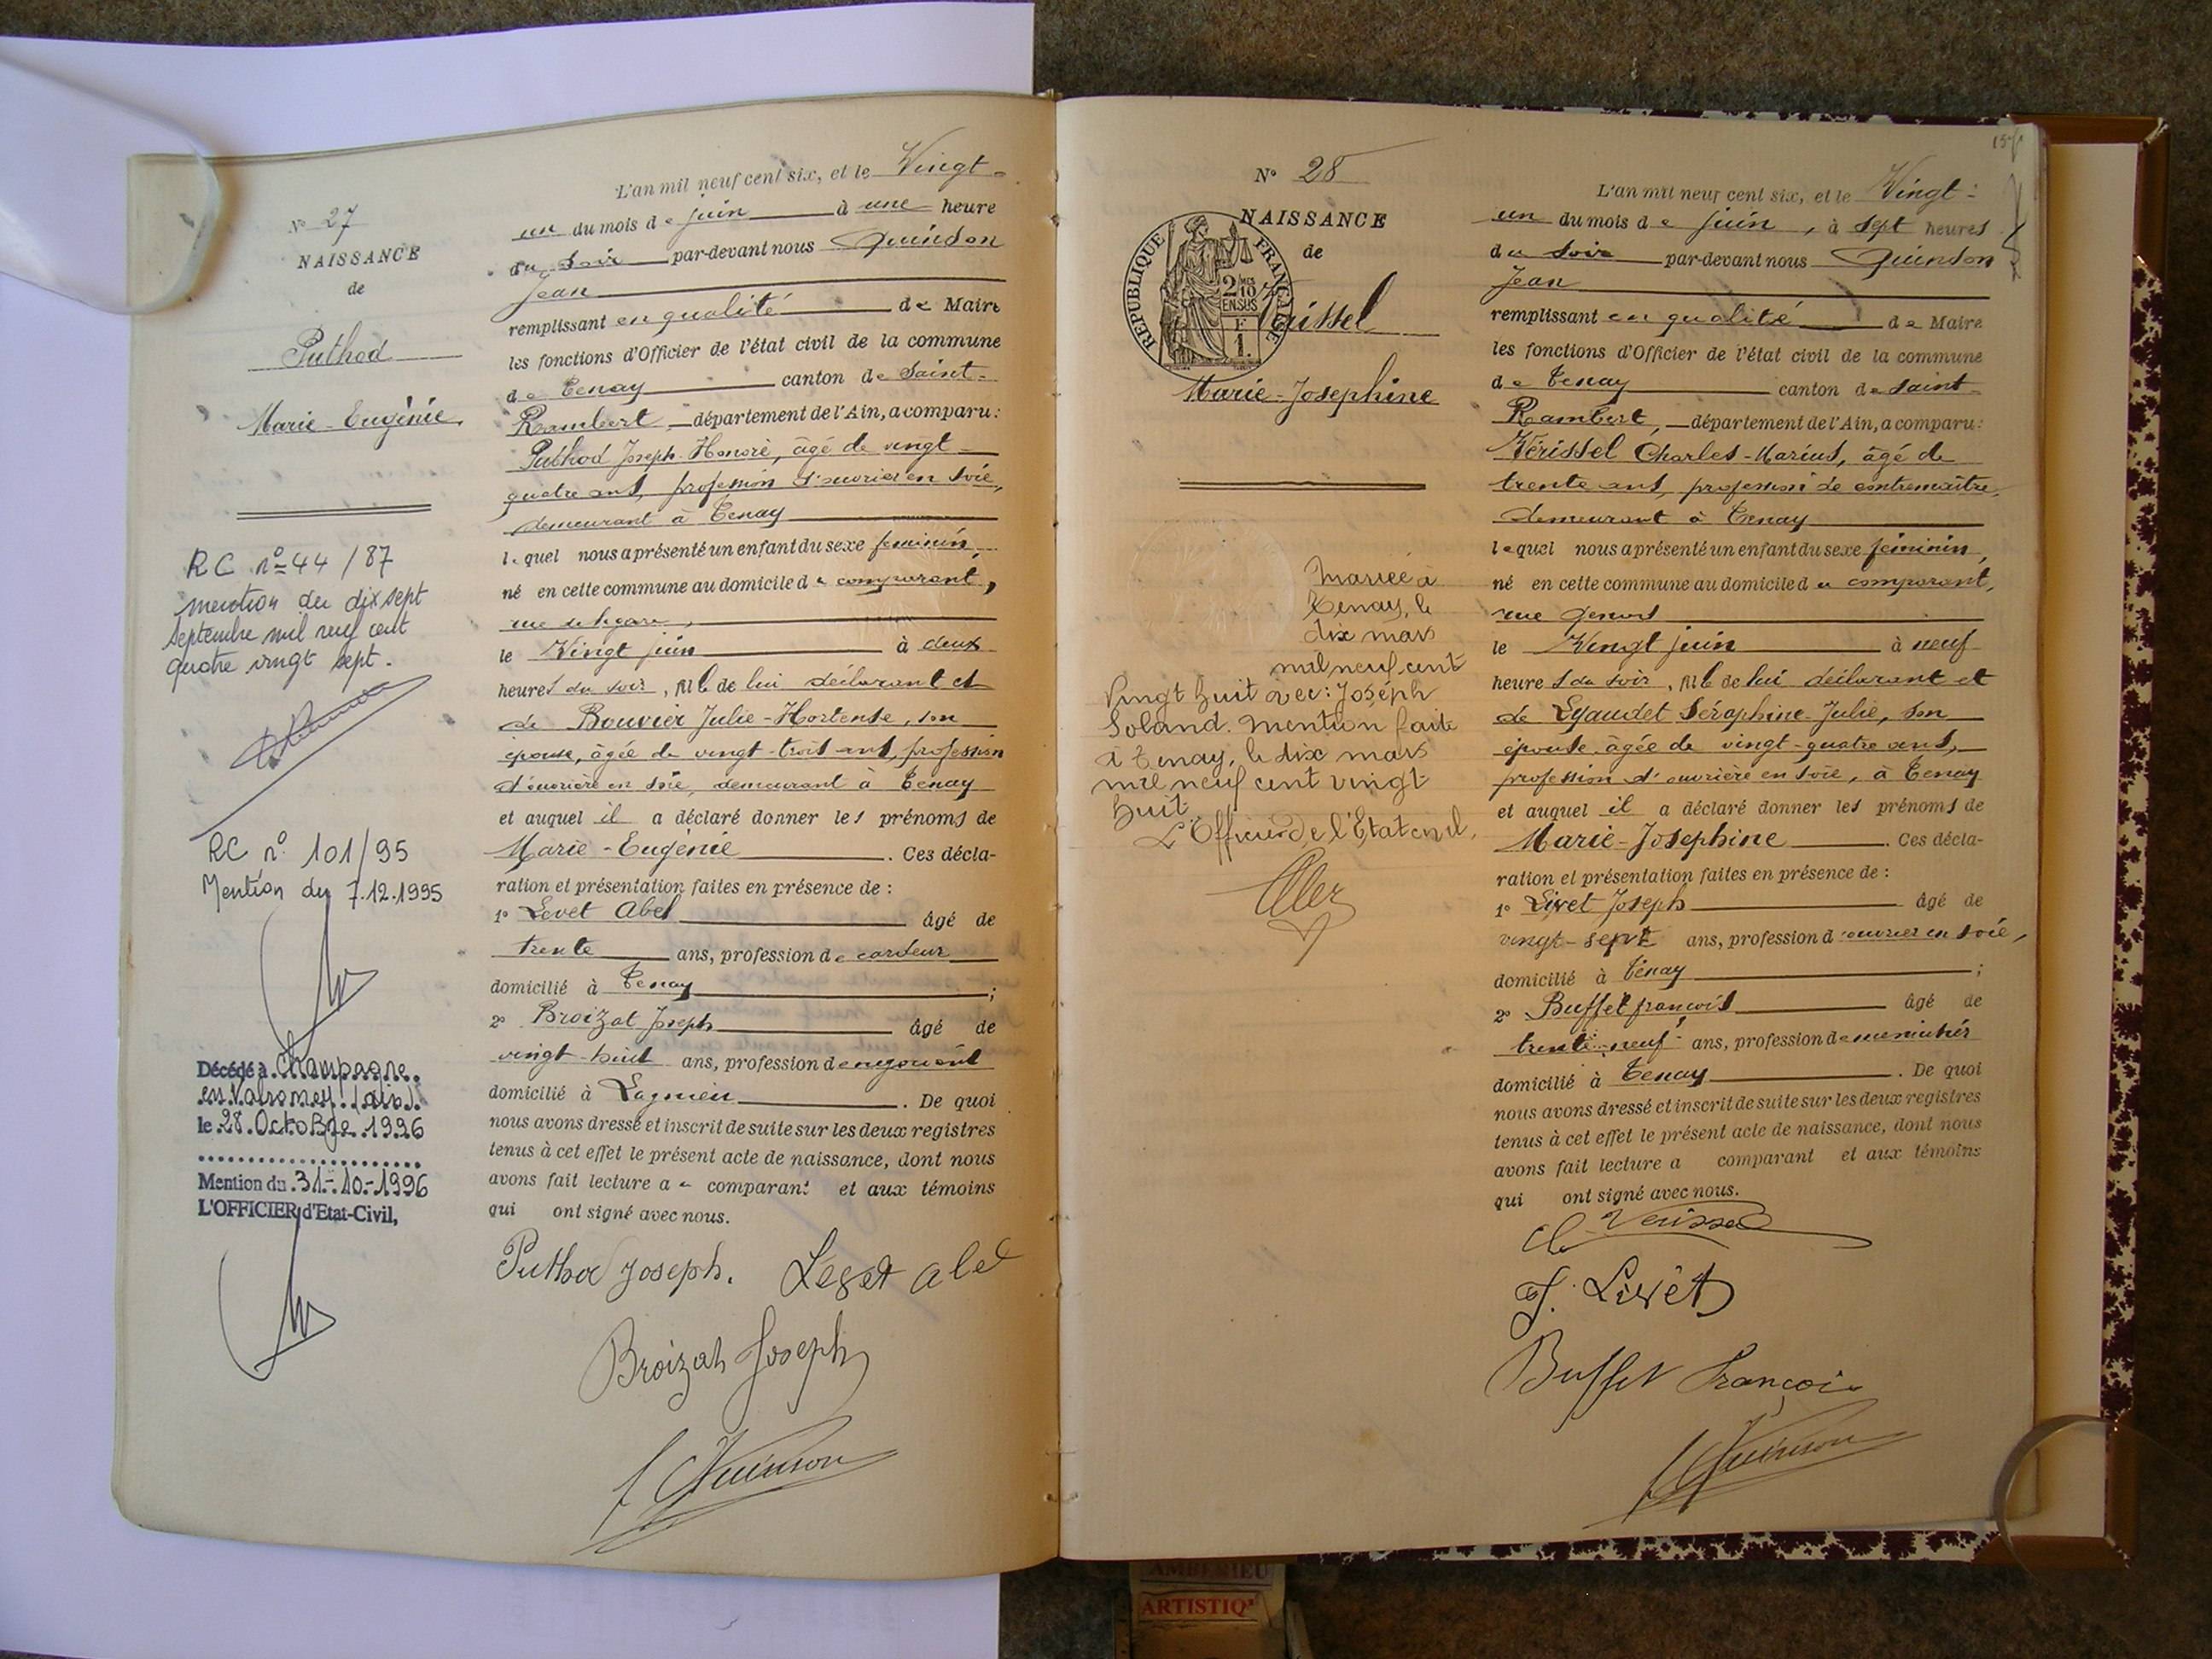 N° 27
NAISSANCE
de
Puthod
Marie-Eugénie
RC n° 44/87
mention du dix sept
Septembre mil neuf cent
quatre vingt sept.
RC n° 101/95
Mention du 7.12.1995
Décédé à Champagne
en Valromey (ain)
le 28 Octobre 1996
Mention du 31-10-1996
L'OFFICIER d'Etat-Civil,
L'an mil neuf cent six, et le Vingt-
un du mois de juin à une heure
du soir par-devant nous Quinson
Jean
remplissant en qualité de Maire
les fonctions d'Officier de l'état civil de la commune
de Tenay canton de Saint-
Rambert, département de l'Ain, a comparu:
Puthod Joseph-Honoré, âgé de vingt-
quatre ans, profession d'ouvrier en soie,
demeurant à Tenay
lequel nous a présenté un enfant du sexe féminin,
né en cette commune au domicile du comparant,
rue de la gare,
le Vingt juin à deux
heures du soir, fille de lui déclarant et
de Bouvier Julie-Hortense, son
épouse, âgée de vingt-trois ans, profession
d'ouvrière en soie, demeurant à Tenay
et auquel il a déclaré donner les prénoms de
Marie-Eugénie. Ces décla-
ration et présentation faites en présence de :
1° Levet Abel âgé de
trente ans, profession de cardeur
domicilié à Tenay;
2° Broizat Joseph âgé de
vingt-huit ans, profession de négociant
domicilié à Lagnieu. De quoi
nous avons dressé et inscrit de suite sur les deux registres
tenus à cet effet le présent acte de naissance, dont nous
avons fait lecture au comparant et aux témoins
qui ont signé avec nous.
Puthod Joseph. Levet abel
Broizat Joseph
J Quinson
157
N° 28
NAISSANCE
de
REPUBLIQUE FRANÇAISE
2/10 EN SUS
F
1.
Vérissel
Marie-Josephine
Mariée à
Tenay, le
dix mars
mil neuf cent
Vingt huit avec: Joseph
Soland. Mention faite
à Tenay, le dix mars
mil neuf cent vingt
huit.
L'Officier de l'Etat civil,
L'an mil neuf cent six, et le Vingt-
un du mois de juin, à sept heures
du soir par-devant nous Quinson
Jean
remplissant en qualité de Maire
les fonctions d'Officier de l'état civil de la commune
de Tenay canton de Saint-
Rambert, département de l'Ain, a comparu:
Vérissel Charles-Marius, âgé de
trente ans, profession de contremaître,
demeurant à Tenay
lequel nous a présenté un enfant du sexe féminin,
né en cette commune au domicile du comparant,
rue
le Vingt juin à neuf
heures du soir, fille de lui déclarant et
de Lyaudet Séraphine-Julie, son
épouse, âgée de vingt-quatre ans,
profession d'ouvrière en soie, à Tenay
et auquel il a déclaré donner les prénoms de
Marie-Josephine. Ces décla-
ration et présentation faites en présence de :
1° Livet Joseph âgé de
vingt-sept ans, profession d'ouvrier en soie,
domicilié à Tenay;
2° Buffet françois âgé de
trente-neuf ans, profession de menuisier
domicilié à Tenay. De quoi
nous avons dressé et inscrit de suite sur les deux registres
tenus à cet effet le présent acte de naissance, dont nous
avons fait lecture a comparant et aux témoins
qui ont signé avec nous.
Ch Verissel
J. Livet
Buffet François
J Quinson
AMBERIEU
ARTISTIQ